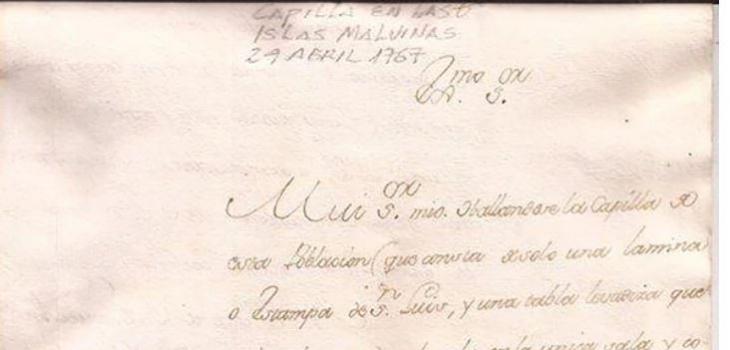 CAPILLA EN LAS
ISLAS MALVINAS
29 ABRIL 1767
Yllmo. or
S.
Mui S.or mio. Hallandose la Capilla de
esta Poblacion (que consta de solo una lamina
o Estampa de S.n Luis, y una tabla levadiza que
en la unica sala y co-